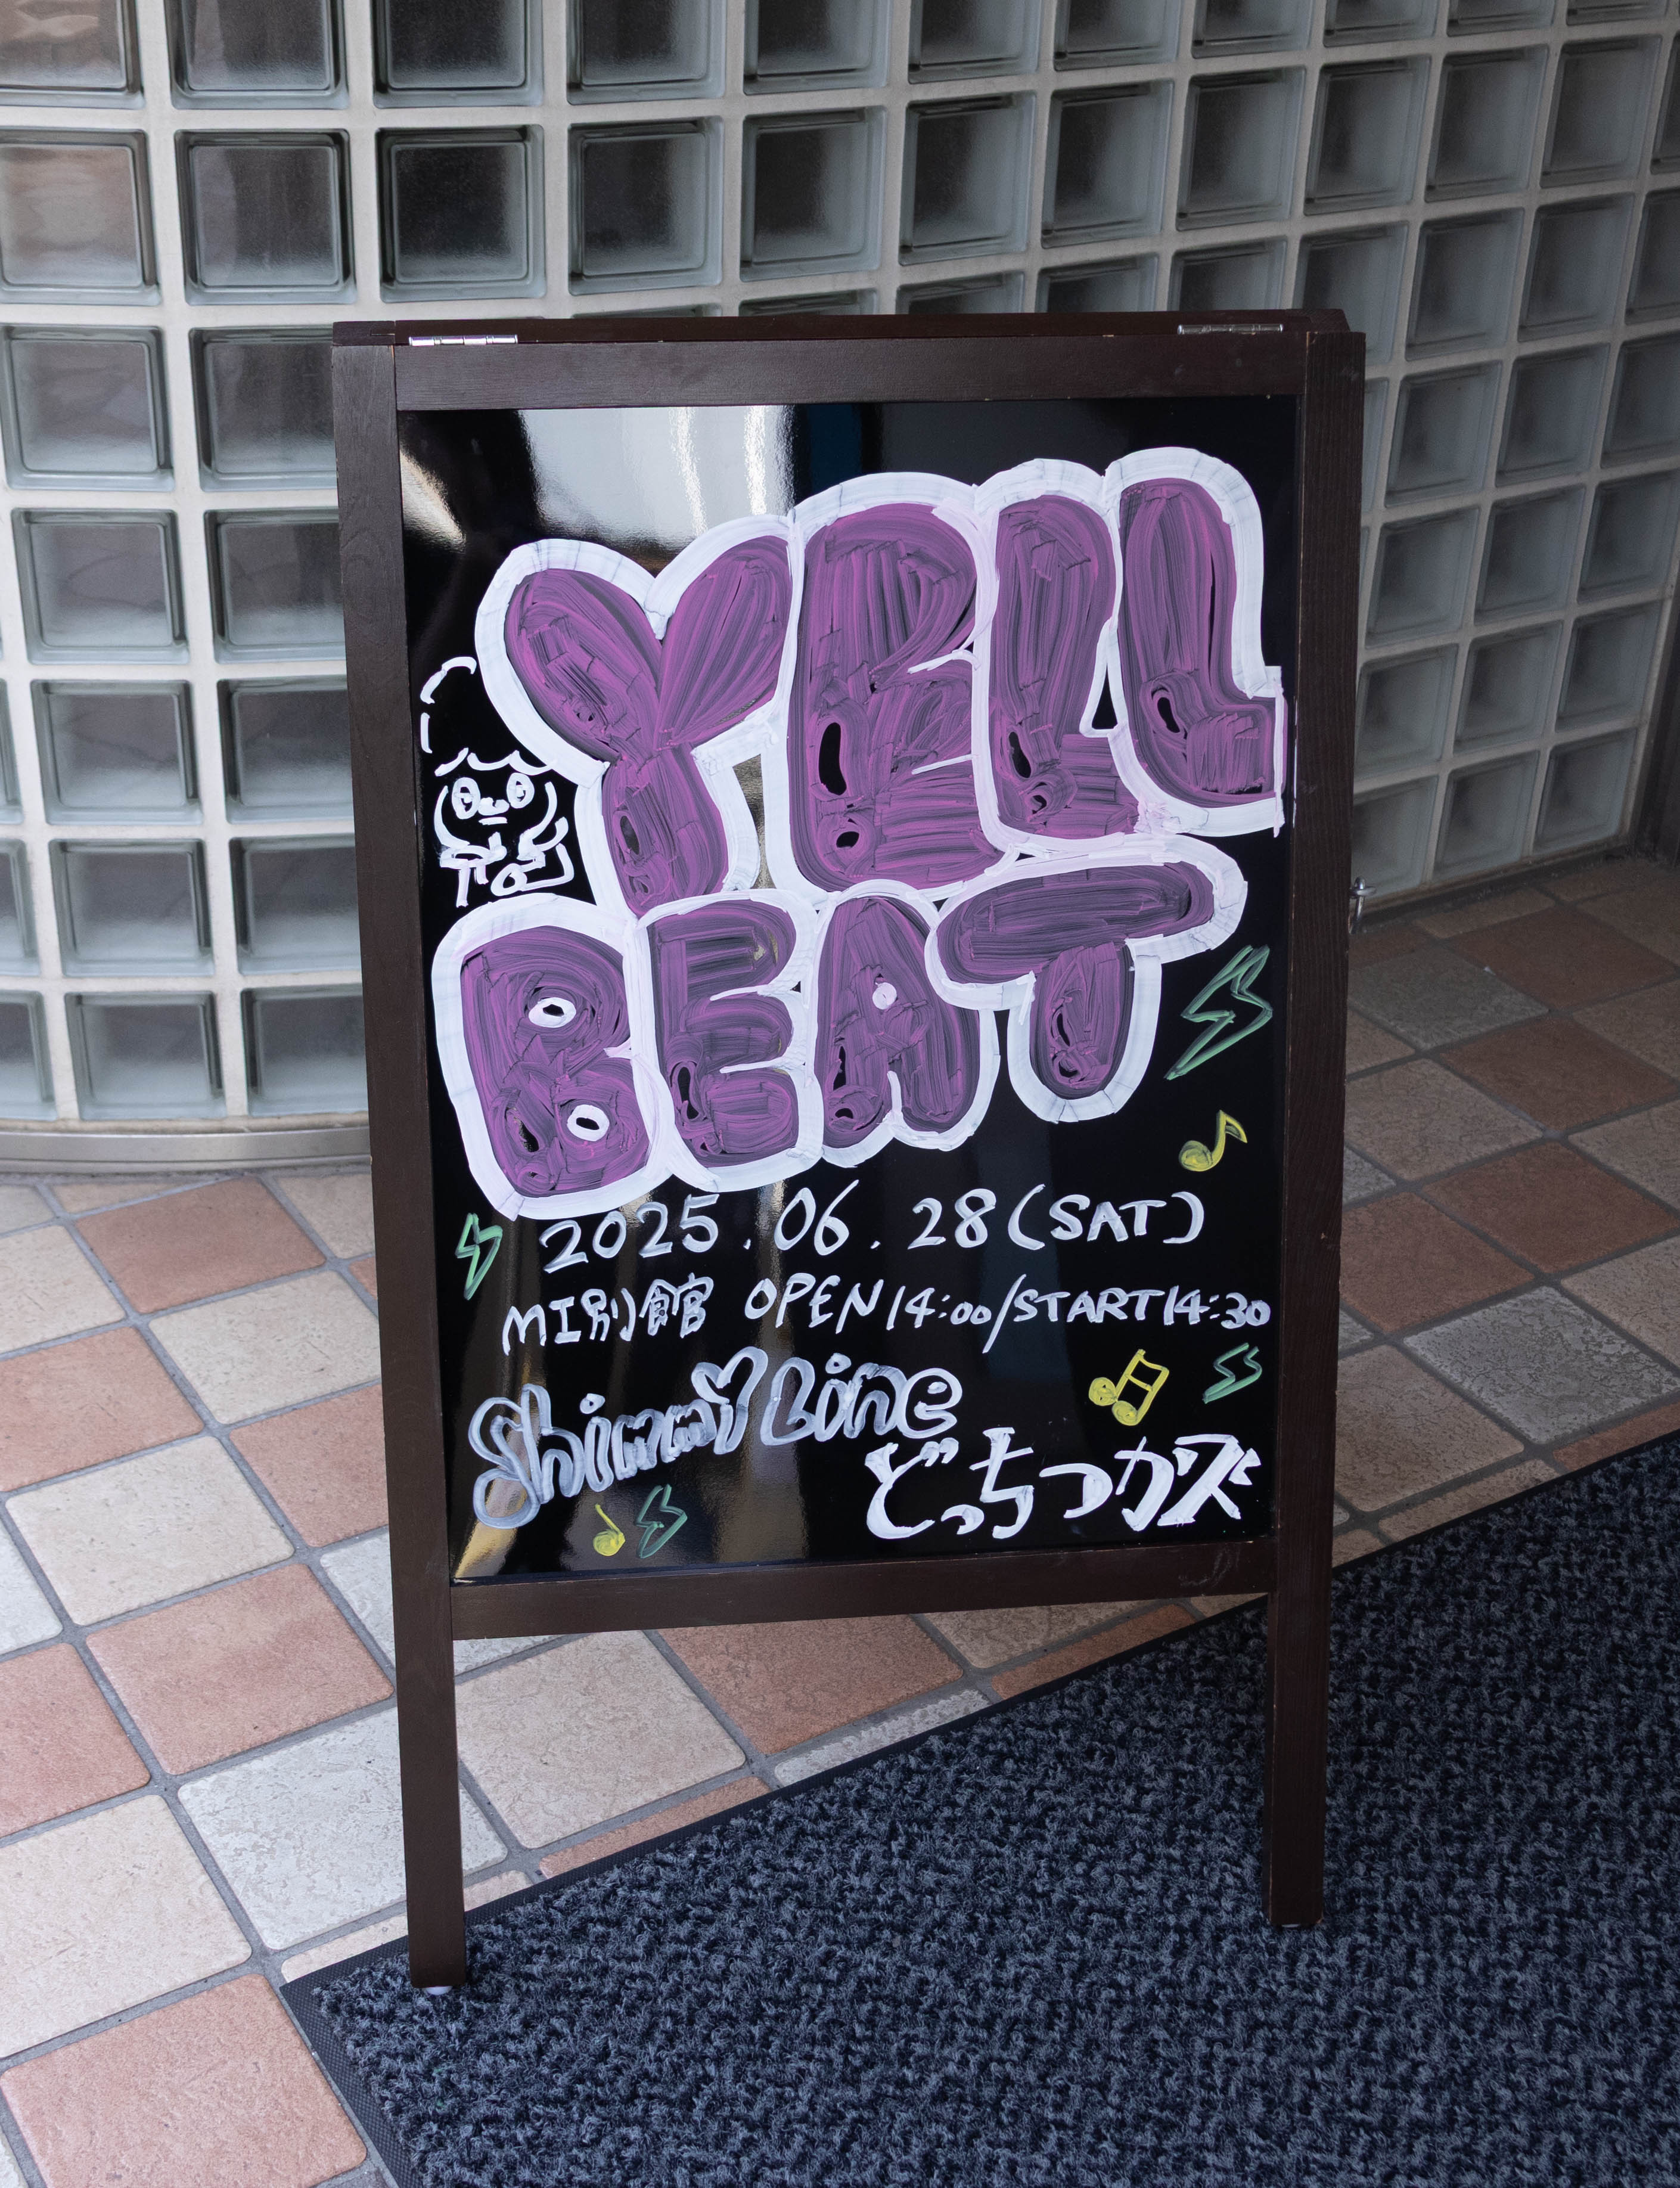 YELL
BEAT
2025.06.28(SAT)
MI別館 OPEN14:00/START14:30
Shimmy Line
どっちつかズ